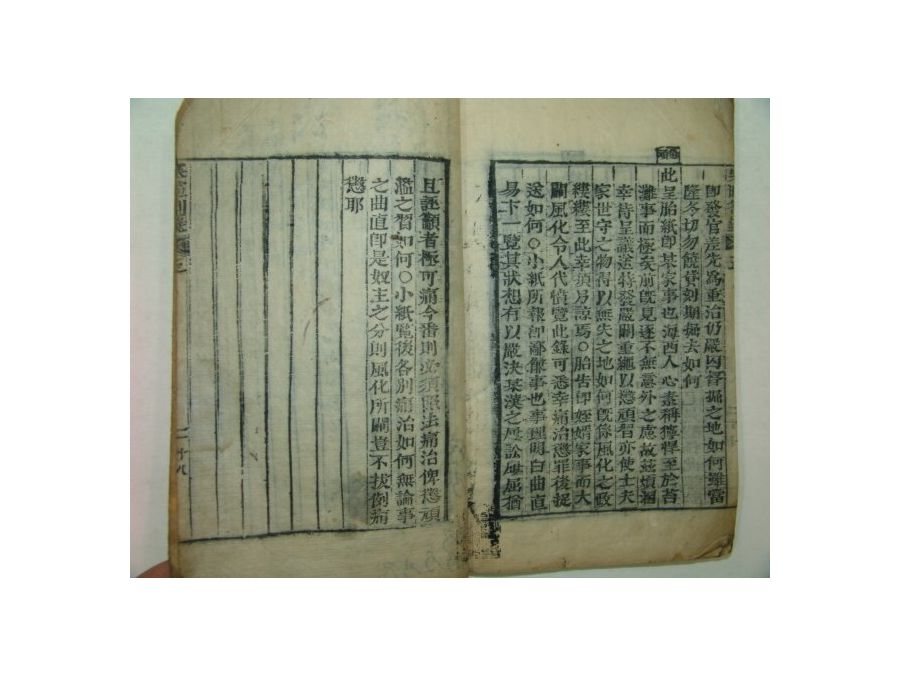 卽發官差先爲重治仍嚴囚督掘之地如何雖當
隆冬切勿饒貸刻期掘去如何
此呈胎紙卽某家事也海西人心素稱獰悍至於苔
灘事而極矣前旣見逐不無意外之慮故玆煩溷
幸待呈議送特發嚴關重繩以懲頑習亦使士夫
家世守之物得以無失之地如何旣係風化之政
縷縷至此幸須另諒焉○胎告卽姪婿家事而大
關風化令人代憤覽此錄可悉幸痛治懲罪後捉
送如何○小紙所報卽鄙館事也事理明白曲直
易卞一覽其狀想有以嚴決某漢之屈訟每屈猶
且誣籲者極可痛今番則必須照法痛治俾懲頑
濫之習如何○小紙覽後各別痛治如何無論事
之曲直卽是奴主之分則風化所關豈不拔倒痛
懲耶
二十八